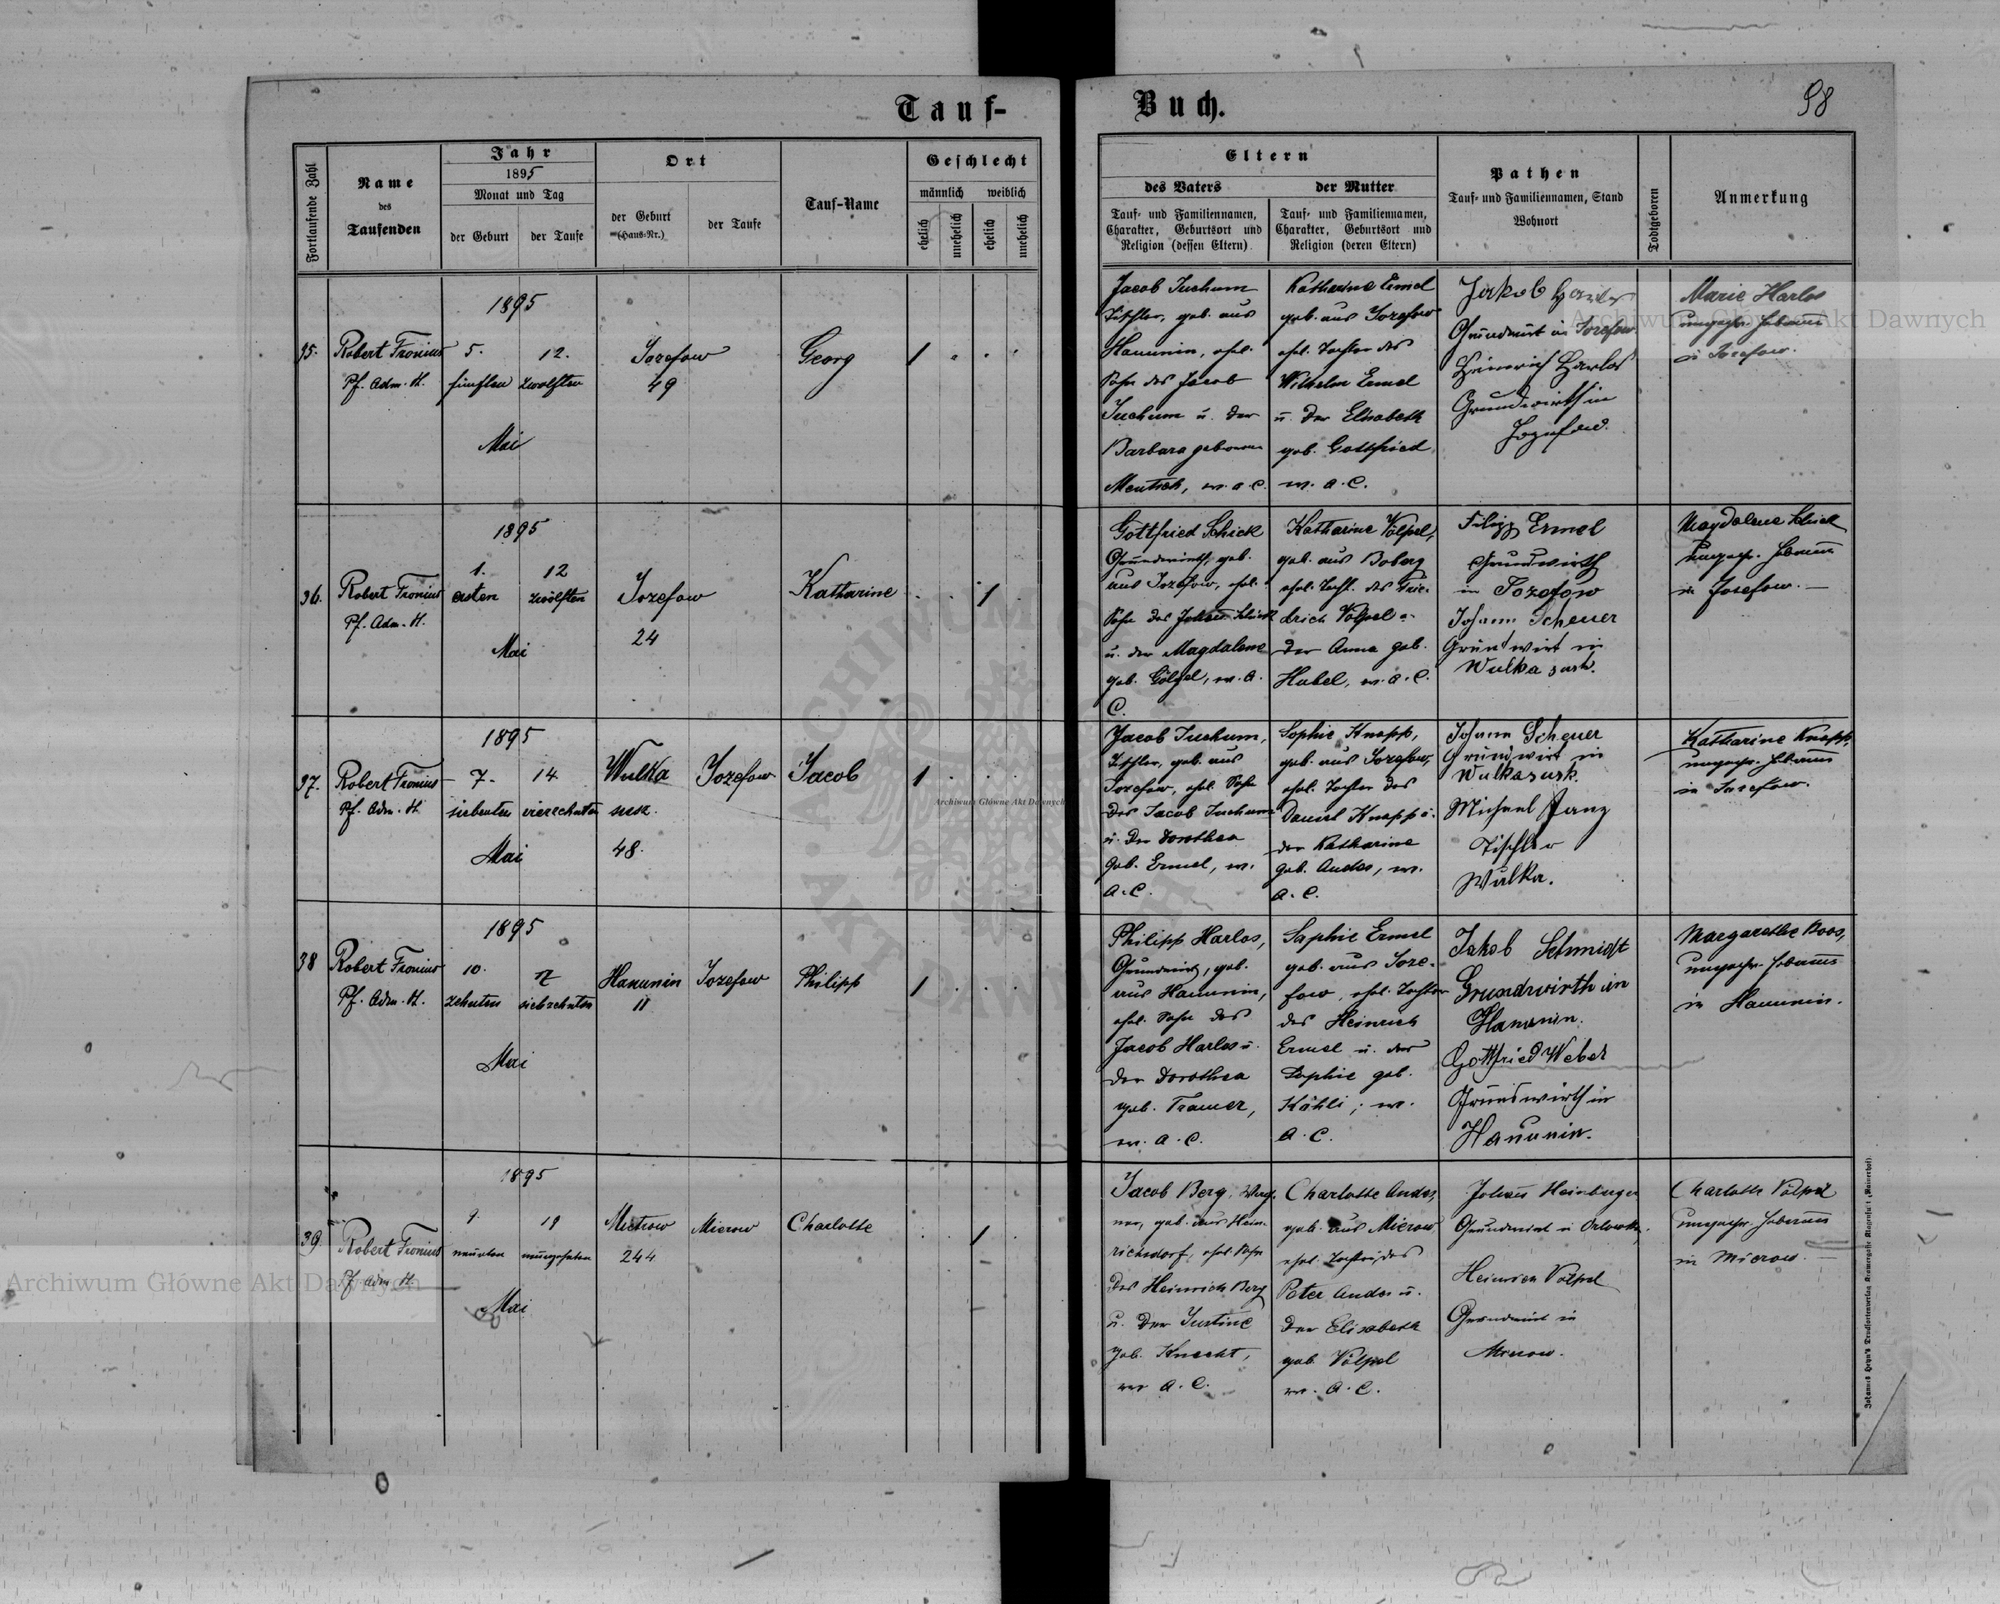 Tauf-
Buch.
98
Fortlaufende Zahl
Name
des
Taufenden
Jahr
1895
Monat und Tag
der Geburt
der Taufe
Ort
der Geburt
(Haus-Nr.)
der Taufe
Tauf-Name
Geschlecht
männlich
weiblich
ehelich
unehelich
ehelich
unehelich
Eltern
des Vaters
der Mutter
Tauf- und Familiennamen,
Charakter, Geburtsort und
Religion (dessen Eltern)
Tauf- und Familiennamen,
Charakter, Geburtsort und
Religion (deren Eltern)
Pathen
Tauf- und Familiennamen, Stand
Wohnort
Todtgeboren
Anmerkung
35.
Robert Fronius
Pf. Adm. H.
1895
5.
12.
fünften
zwölften
Mai
Jozefow
49
Georg
1
Jacob Juchum
Tischler, geb. aus
Hanunin, ehel.
Sohn des Jacob
Juchum u. der
Barbara geborene
Mentsch, ev. A. C.
Katharine Ermel
geb. aus Jozefow
ehel. Tochter des
Wilhelm Ermel
u. der Elisabeth
geb. Gottfried
ev. A. C.
Jakob
Grundwirt in Jozefow
Heinrich Harlos
Grundwirth in
Jozefow.
Marie Harlos
ungepr. Hebamme
in Josefow.
36.
Robert Fronius
Pf. Adm. H.
1895
1.
12
ersten
zwölften
Mai
Jozefow
24
Katharine
1
Gottfried Schick
Grundwirth, geb.
aus Jozefow, ehel.
Sohn des Johann Schick
u. der Magdalene
geb. Gölzel, ev. A.
C.
Katharine Völpel,
geb. aus Boberg
ehel. Tocht. des Frie-
drich Völpel u.
der Anna geb.
Habel, ev. A. C.
Filipp Ermel
Grundwirth
in Jozefow
Johann Scheuer
Grundwirt in
Wulka susk.
Magdalene Schick
ungepr. Hebamme
in Josefow.
37.
Robert Fronius
Pf. Adm. H.
1895
7.
14
siebenten
vierzehnten
Mai
Wulka
susz.
48.
Jozefow
Jacob
1
Jacob Juchum,
Tischler, geb. aus
Jozefow, ehel. Sohn
des Jacob Juchum
u. der Dorothea
geb. Ermel, ev.
A. C.
Sophie Knapp,
geb. aus Jozefow,
ehel. Tochter des
Daniel Knapp u.
der Katharine
geb. Andes, ev.
A. C.
Johann Scheuer
Grundwirt in
Wulkasusk.
Michael Janz
Tischler
Wulka.
Katharine Knapp,
ungepr. Hebamme
in Josefow.
38
Robert Fronius
Pf. Adm. H.
1895
10.
17
zehnten
siebzehnten
Mai
Hanunin
11
Jozefow
Philipp
1
Philipp Harlos,
Grundwirt, geb.
aus Hanunin,
ehel. Sohn des
Jacob Harlos u.
der Dorothea
geb. Tramer,
ev. A. C.
Sophie Ermel
geb. aus Joze-
fow, ehel. Tochter
des Heinrich
Ermel u. der
Sophie geb.
Kähli, ev.
A. C.
Jakob Schmidt
Grundwirth in
Hanunin.
Gottfried Weber
Grundwirth in
Hanunin.
Margarethe Boos,
ungepr. Hebamme
in Hanunin.
39
Robert Fronius
Pf. Adm. H.
1895
9.
19
neunten
neunzehnten
Mai
Mierow
244
Mierow
Charlotte
1
Jacob Berg, Wag-
ner, geb. aus Hein-
richsdorf, ehel. Sohn
des Heinrich Berg
u. der Justine
geb. Knecht,
ev. A. C.
Charlotte Andes,
geb. aus Mierow,
ehel. Tochter des
Peter Andes u.
der Elisabeth
geb. Völpel
ev. A. C.
Johann Heinberger
Grundwirt in
Heinrich Völpel
Grundwirt in
Mierow.
Charlotte Völpel
ungepr. Hebamme
in Mierow.
Archiwum Główne Akt Dawnych
Archiwum Główne Akt Dawnych
Archiwum Główne Akt Dawnych